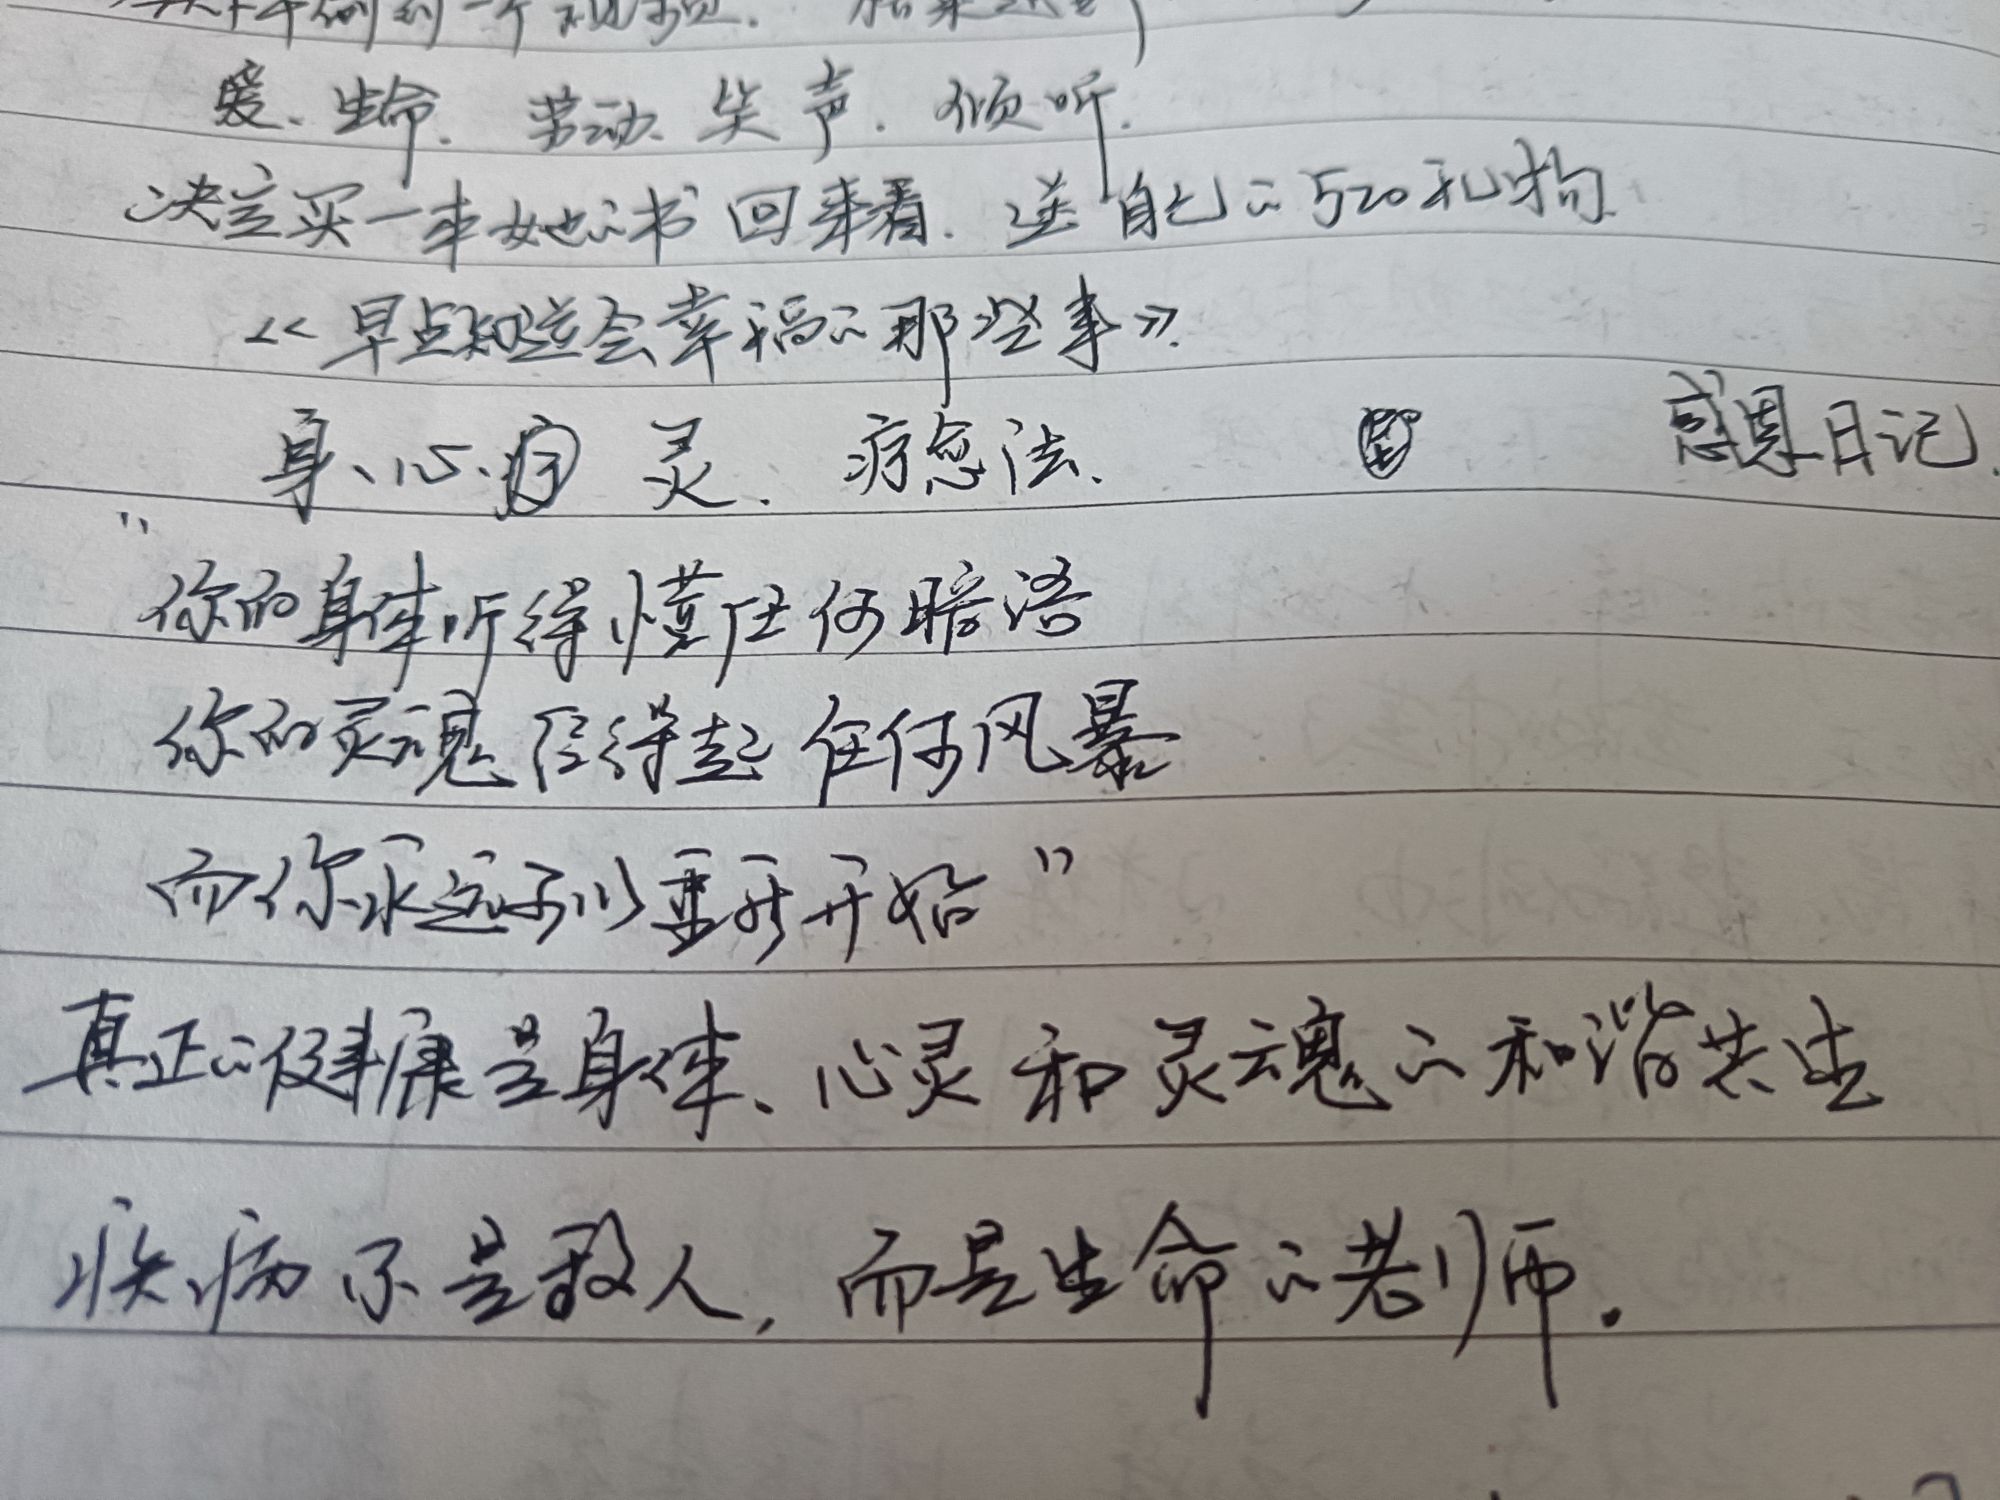 爱、生命、劳动、笑声、倾听.
决定买一本她的书回来看.送自己的520礼物
《早点知道会幸福的那些事》.
身、心、灵、疗愈法. 感恩日记.
"你的身体听得懂任何暗语
你的灵魂经得起任何风暴
而你永远可以重新开始"
真正的健康是身体、心灵和灵魂的和谐共生
疾病不是敌人,而是生命的老师.